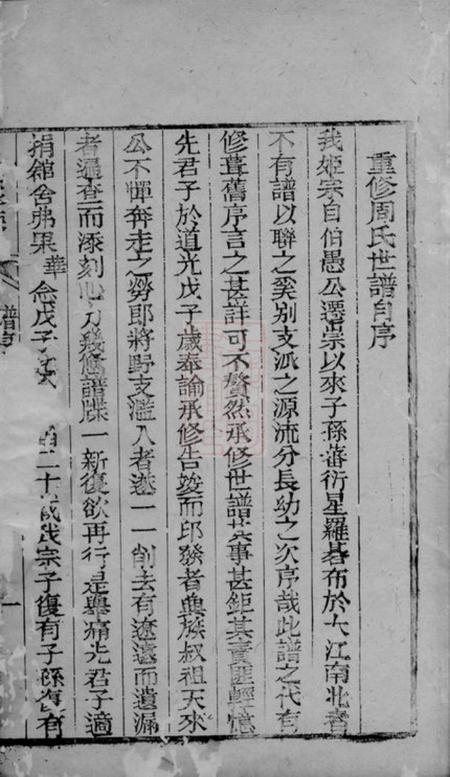 重修周氏世譜自序
我姬宗自伯愚公遷宗以來子孫蕃衍星羅碁布於大江南北者
不有譜以聯之奚別支派之源流分長幼之次序哉此譜之代有
修葺舊序言之甚詳可不贅然承修世譜其事甚鉅其責匪輕憶
先君子於道光戊子歲奉諭承修告竣而印發者與族叔祖天來
公不憚奔走之勞郎將野支濫入者逐一一削去有遼遠而遺漏
者遍查而添刻心力幾譜牒一新復欲再行是舉痛先君子適
捐館舍弗果華念戊子二十歲我宗子復有子孫復有
譜序
一